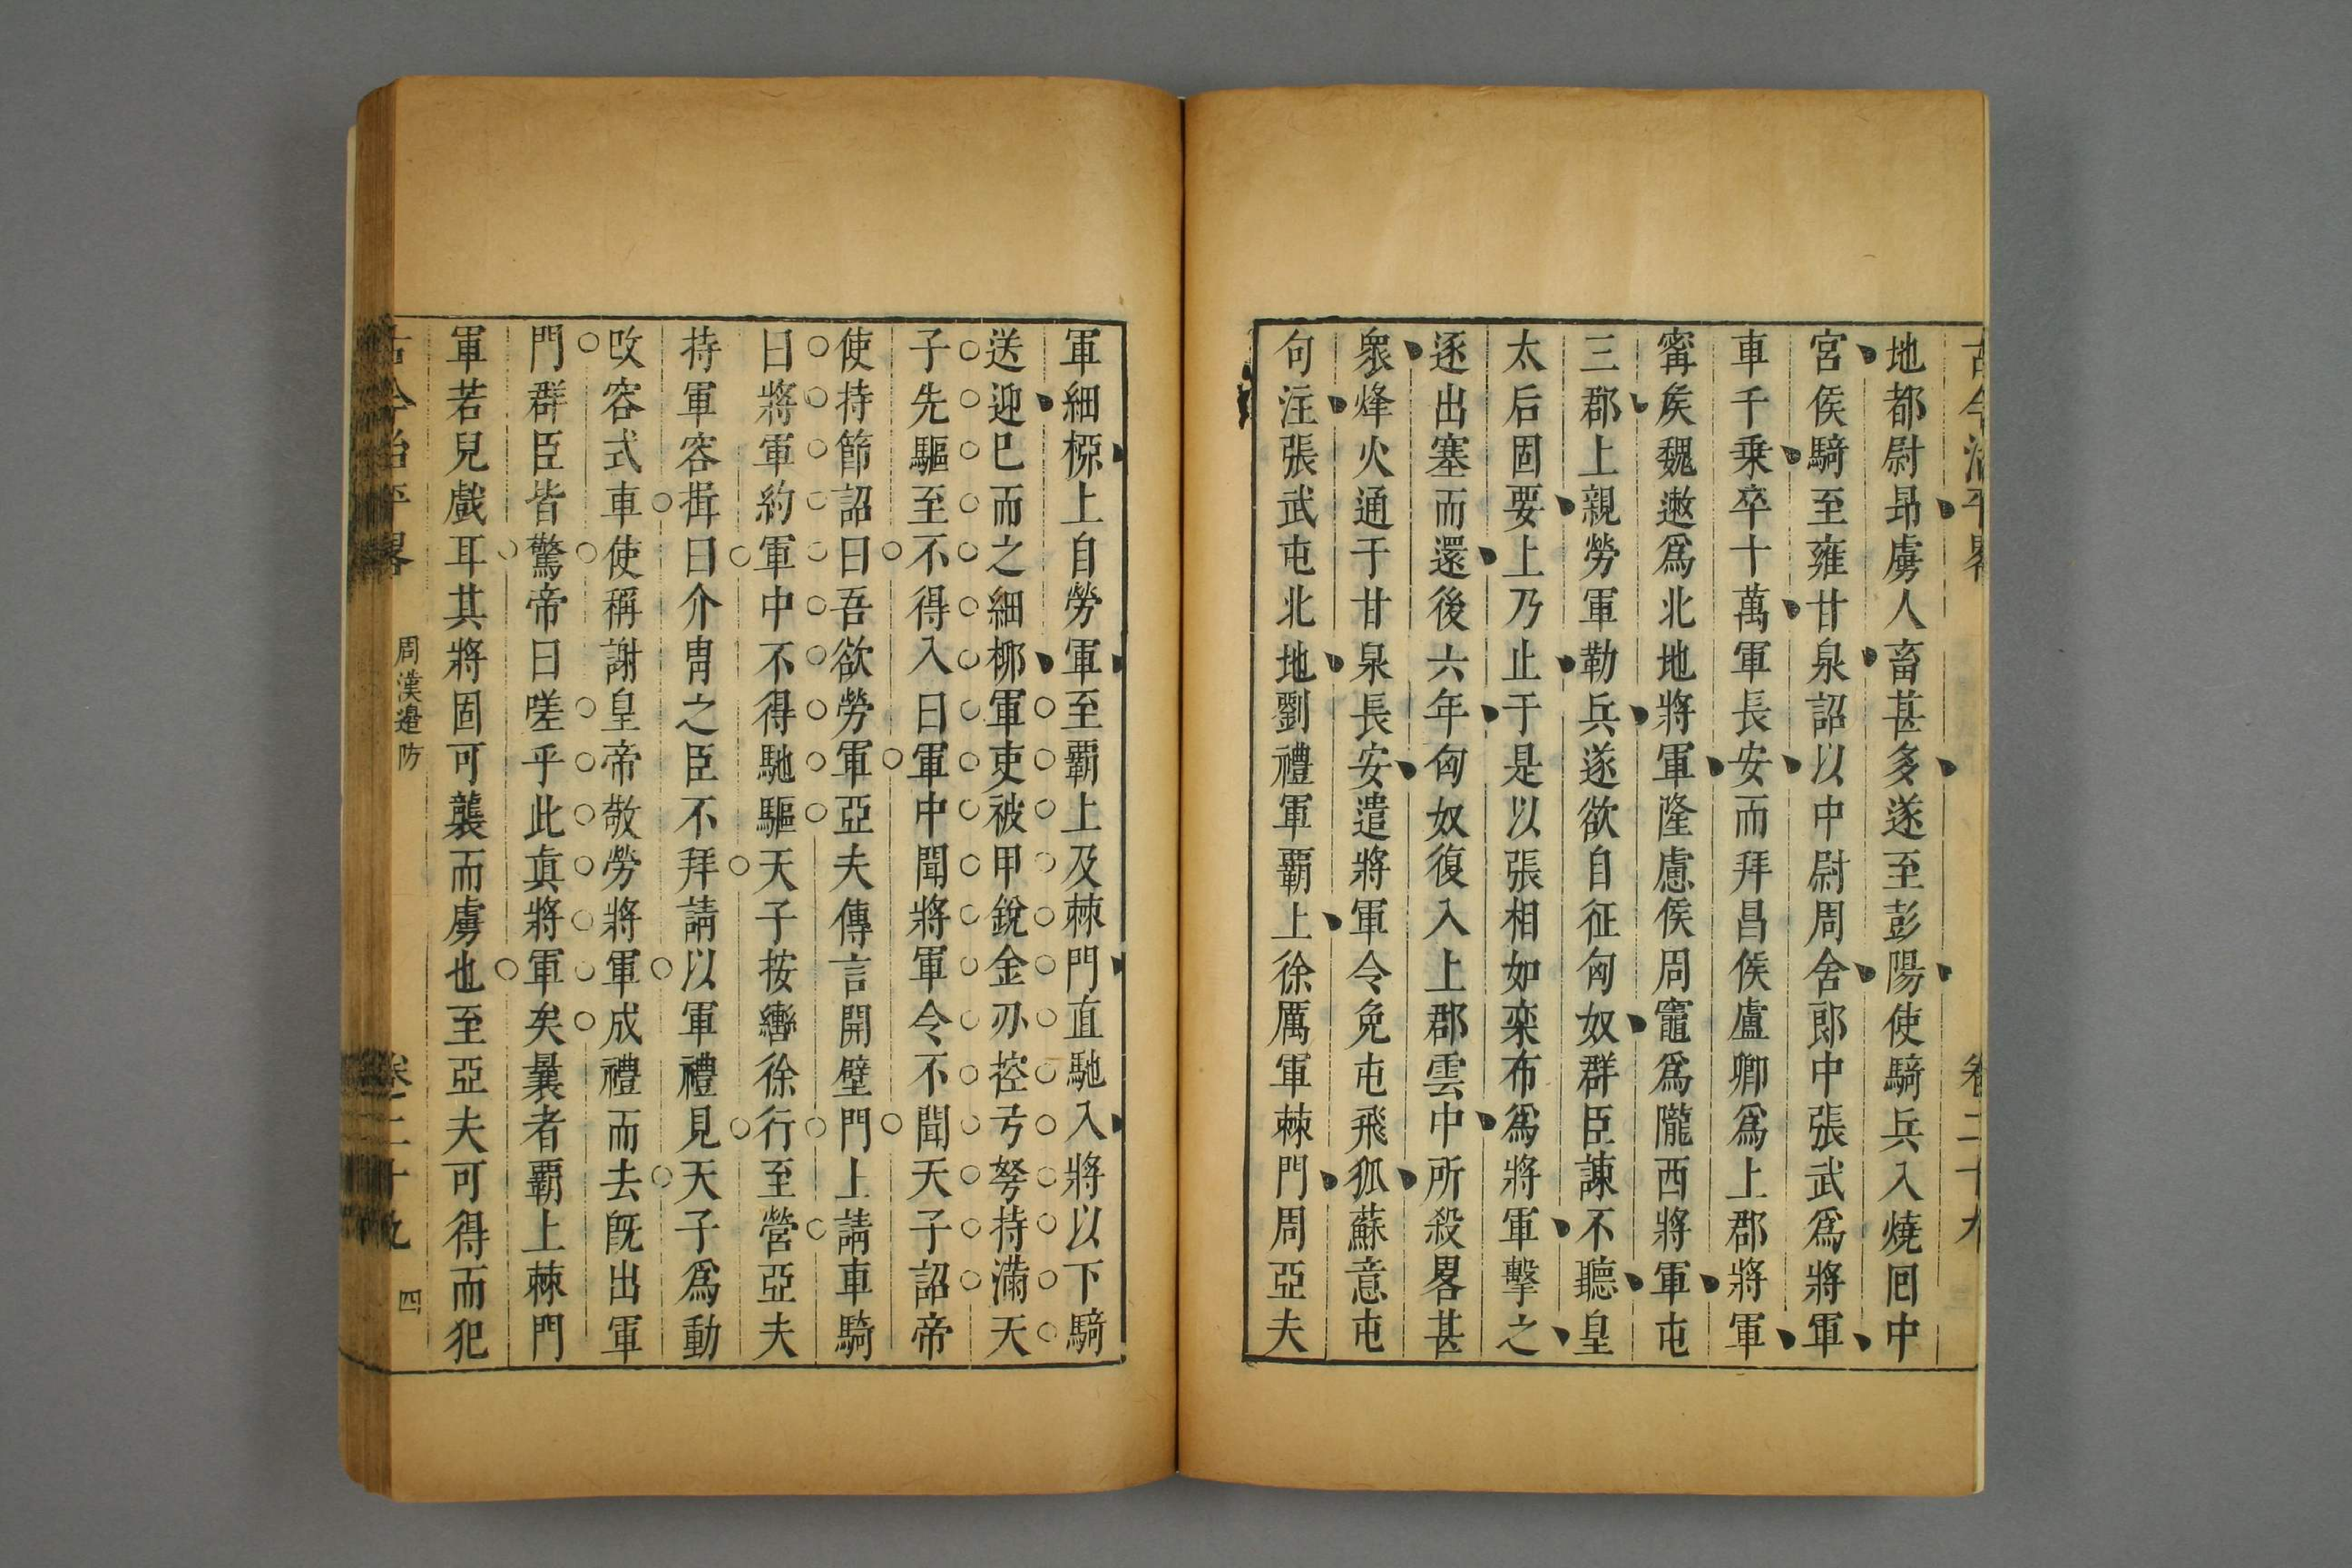 地都尉昻虜人畜甚多遂至彭陽使騎兵入燒囘中
宮侯騎至雍甘泉詔以中尉周舍郎中張武爲將軍
車千乗卒十萬軍長安而拜昌侯盧卿爲上郡將軍
寗矦魏遬爲北地將軍隆慮侯周竈爲隴西將軍屯
三郡上親勞軍勒兵遂欲自征匈奴群臣諫不聽皇
太后固要上乃止于是以張相如栾布爲將軍擊之
逐出塞而還後六年匈奴復入上郡雲中所殺畧甚
衆烽火通于甘泉長安遣將軍令免屯飛狐蘇意屯
句注張武屯北地劉禮軍覇上徐厲軍棘門周亞夫
軍細桺上自勞軍至覇上及棘門直馳入將以下騎
送迎巳而之細栁軍軍吏被甲銳金刅控弓弩持滿天
子先驅至不得入曰軍中聞將軍令不聞天子詔帝
使持節詔曰吾欲勞軍亞夫傳言開壁門上請車騎
曰將軍約軍中不得馳驅天子按轡徐行至營亞夫
持軍容揖曰介胄之臣不拜請以軍禮見天子爲動
改容式車使稱謝皇帝敬勞將軍成禮而去旣出軍
門群臣皆驚帝曰嗟乎此真將軍矣曩者覇上棘門
軍若兒戲耳其將固可襲而虜也至亞夫可得而犯
古今治平畧 周漢邊防 卷二十九 四